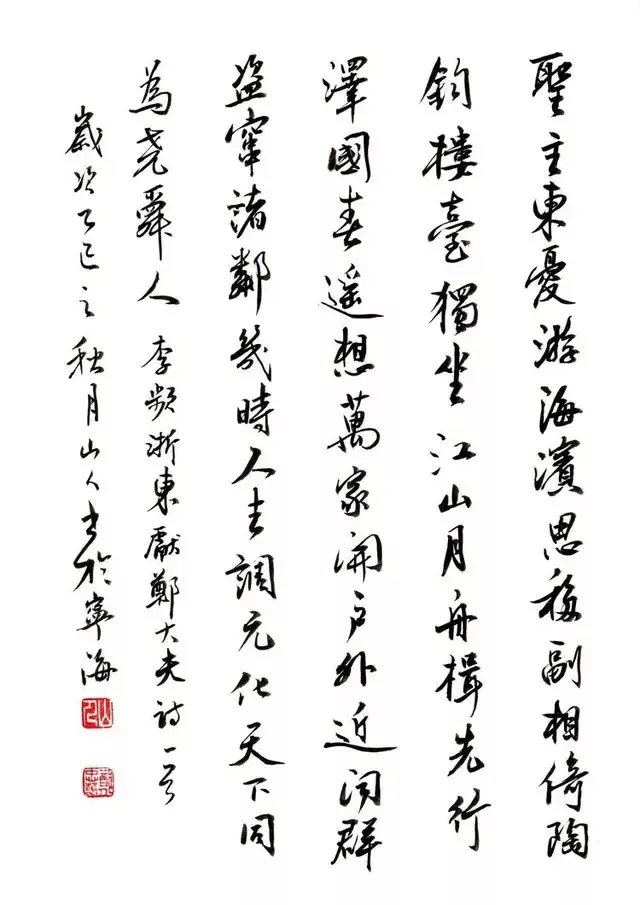 聖主東憂游海濱思移副相倚陶
鈞樓臺獨坐江山月舟楫先行
澤國春遥想萬家開户外近聞群
盗窜諸鄰幾時人去調元化天下同
為尧舜人 李频浙東獻鄭大夫詩一首
歲次乙巳之秋月山人書於寧海
山人